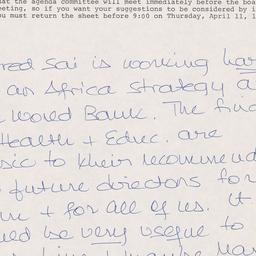 at the agenda committee will meet immediately before the boa
eeting, so if you want your suggestions to be considered by i
ou must return the sheet before 9:00 on Thursday, April 11, 1
red Sai is working har
an Africa strategy a
World Bank. The fin
Health + Educ. are
sic to their recommend
future directions for
+ for all of us. It
be very useful to